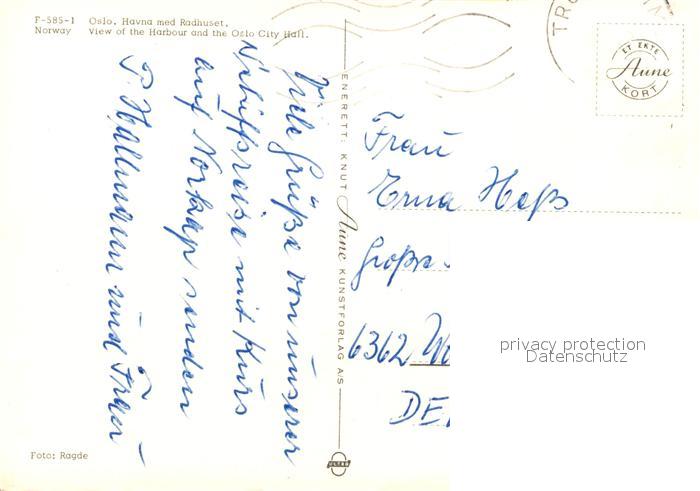 F-585-1 Oslo, Havna med Rådhuset.
Norway View of the Harbour and the Oslo City Hall.
Viele Grüße von unserer
Schiffsreise mit Kurs
auf Norkap senden
P. Hollmann und Frau
ENERETT: KNUT Aune KUNSTFORLAG A/S
ULTRA
Foto: Ragde
TRO
ET EKTE
Aune
KORT
Frau
Erna Heß
Große
6362
privacy protection
Datenschutz